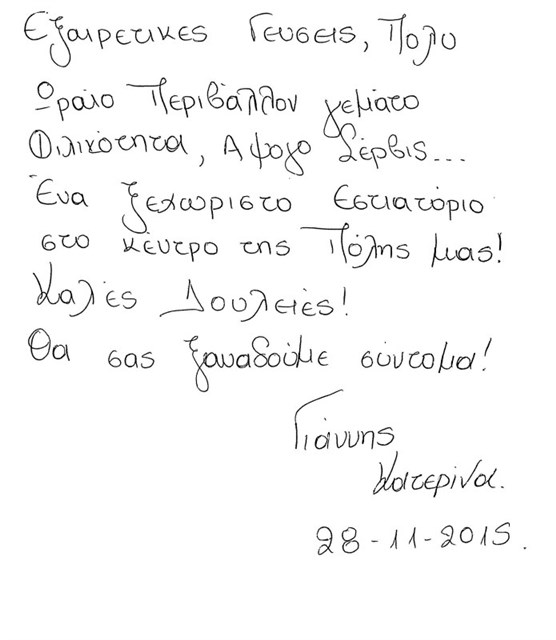 Εξαιρετικες Γευσεις, Πολυ
Ωραίο Περιβάλλον γεμάτο
Φιλικότητα, Αψογο Σέρβις...
Ένα ξεχωριστο Εστιατόριο
στο κέντρο της Πόλης μας!
Καλές Δουλειές!
Θα σας ξαναδούμε σύντομα!
Γιάννης
Κατερίνα.
28-11-2015.